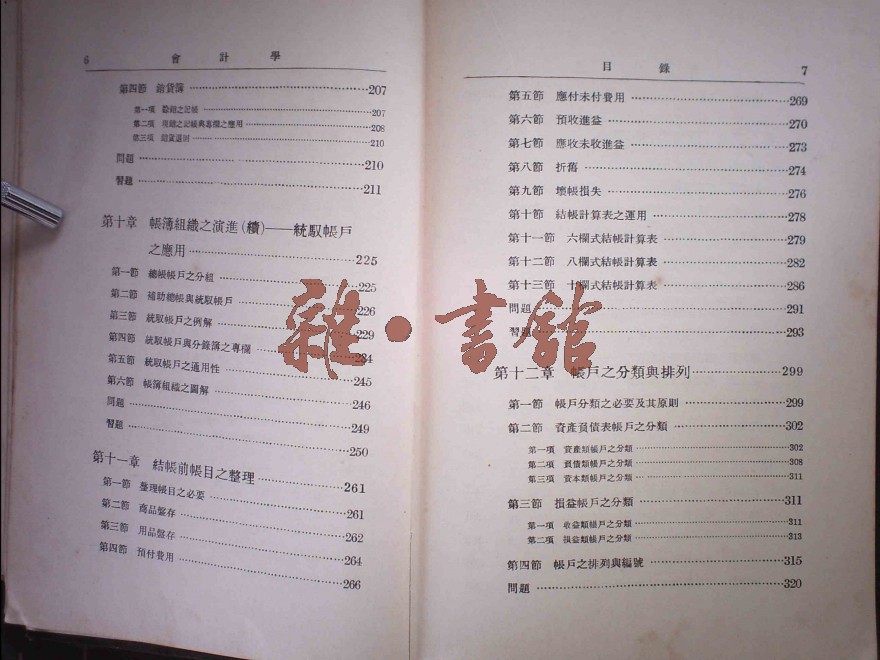 6 會計學
第四節 銷貨簿 207
第一項 賒銷之記帳 207
第二項 現銷之記帳與專欄之應用 208
第三項 銷貨退回 210
問題 210
習題 211
第十章 帳簿組織之演進(續)——統馭帳戶
之應用 225
第一節 總帳帳戶之分組 225
第二節 補助總帳與統馭帳戶 226
第三節 統馭帳戶之例解 229
第四節 統馭帳戶與分錄簿之專欄 234
第五節 統馭帳戶之通用性 245
第六節 帳簿組織之圖解 246
問題 249
習題 250
第十一章 結帳前帳目之整理 261
第一節 整理帳目之必要 261
第二節 商品盤存 262
第三節 用品盤存 264
第四節 預付費用 266
目錄 7
第五節 應付未付費用 269
第六節 預收進益 270
第七節 應收未收進益 273
第八節 折舊 274
第九節 壞帳損失 276
第十節 結帳計算表之運用 278
第十一節 六欄式結帳計算表 279
第十二節 八欄式結帳計算表 282
第十三節 十欄式結帳計算表 286
問題 291
習題 293
第十二章 帳戶之分類與排列 299
第一節 帳戶分類之必要及其原則 299
第二節 資產負債表帳戶之分類 302
第一項 資產類帳戶之分類 302
第二項 負債類帳戶之分類 308
第三項 資本類帳戶之分類 311
第三節 損益帳戶之分類 311
第一項 收益類帳戶之分類 311
第二項 損益類帳戶之分類 313
第四節 帳戶之排列與編號 315
問題 320
雜·書館